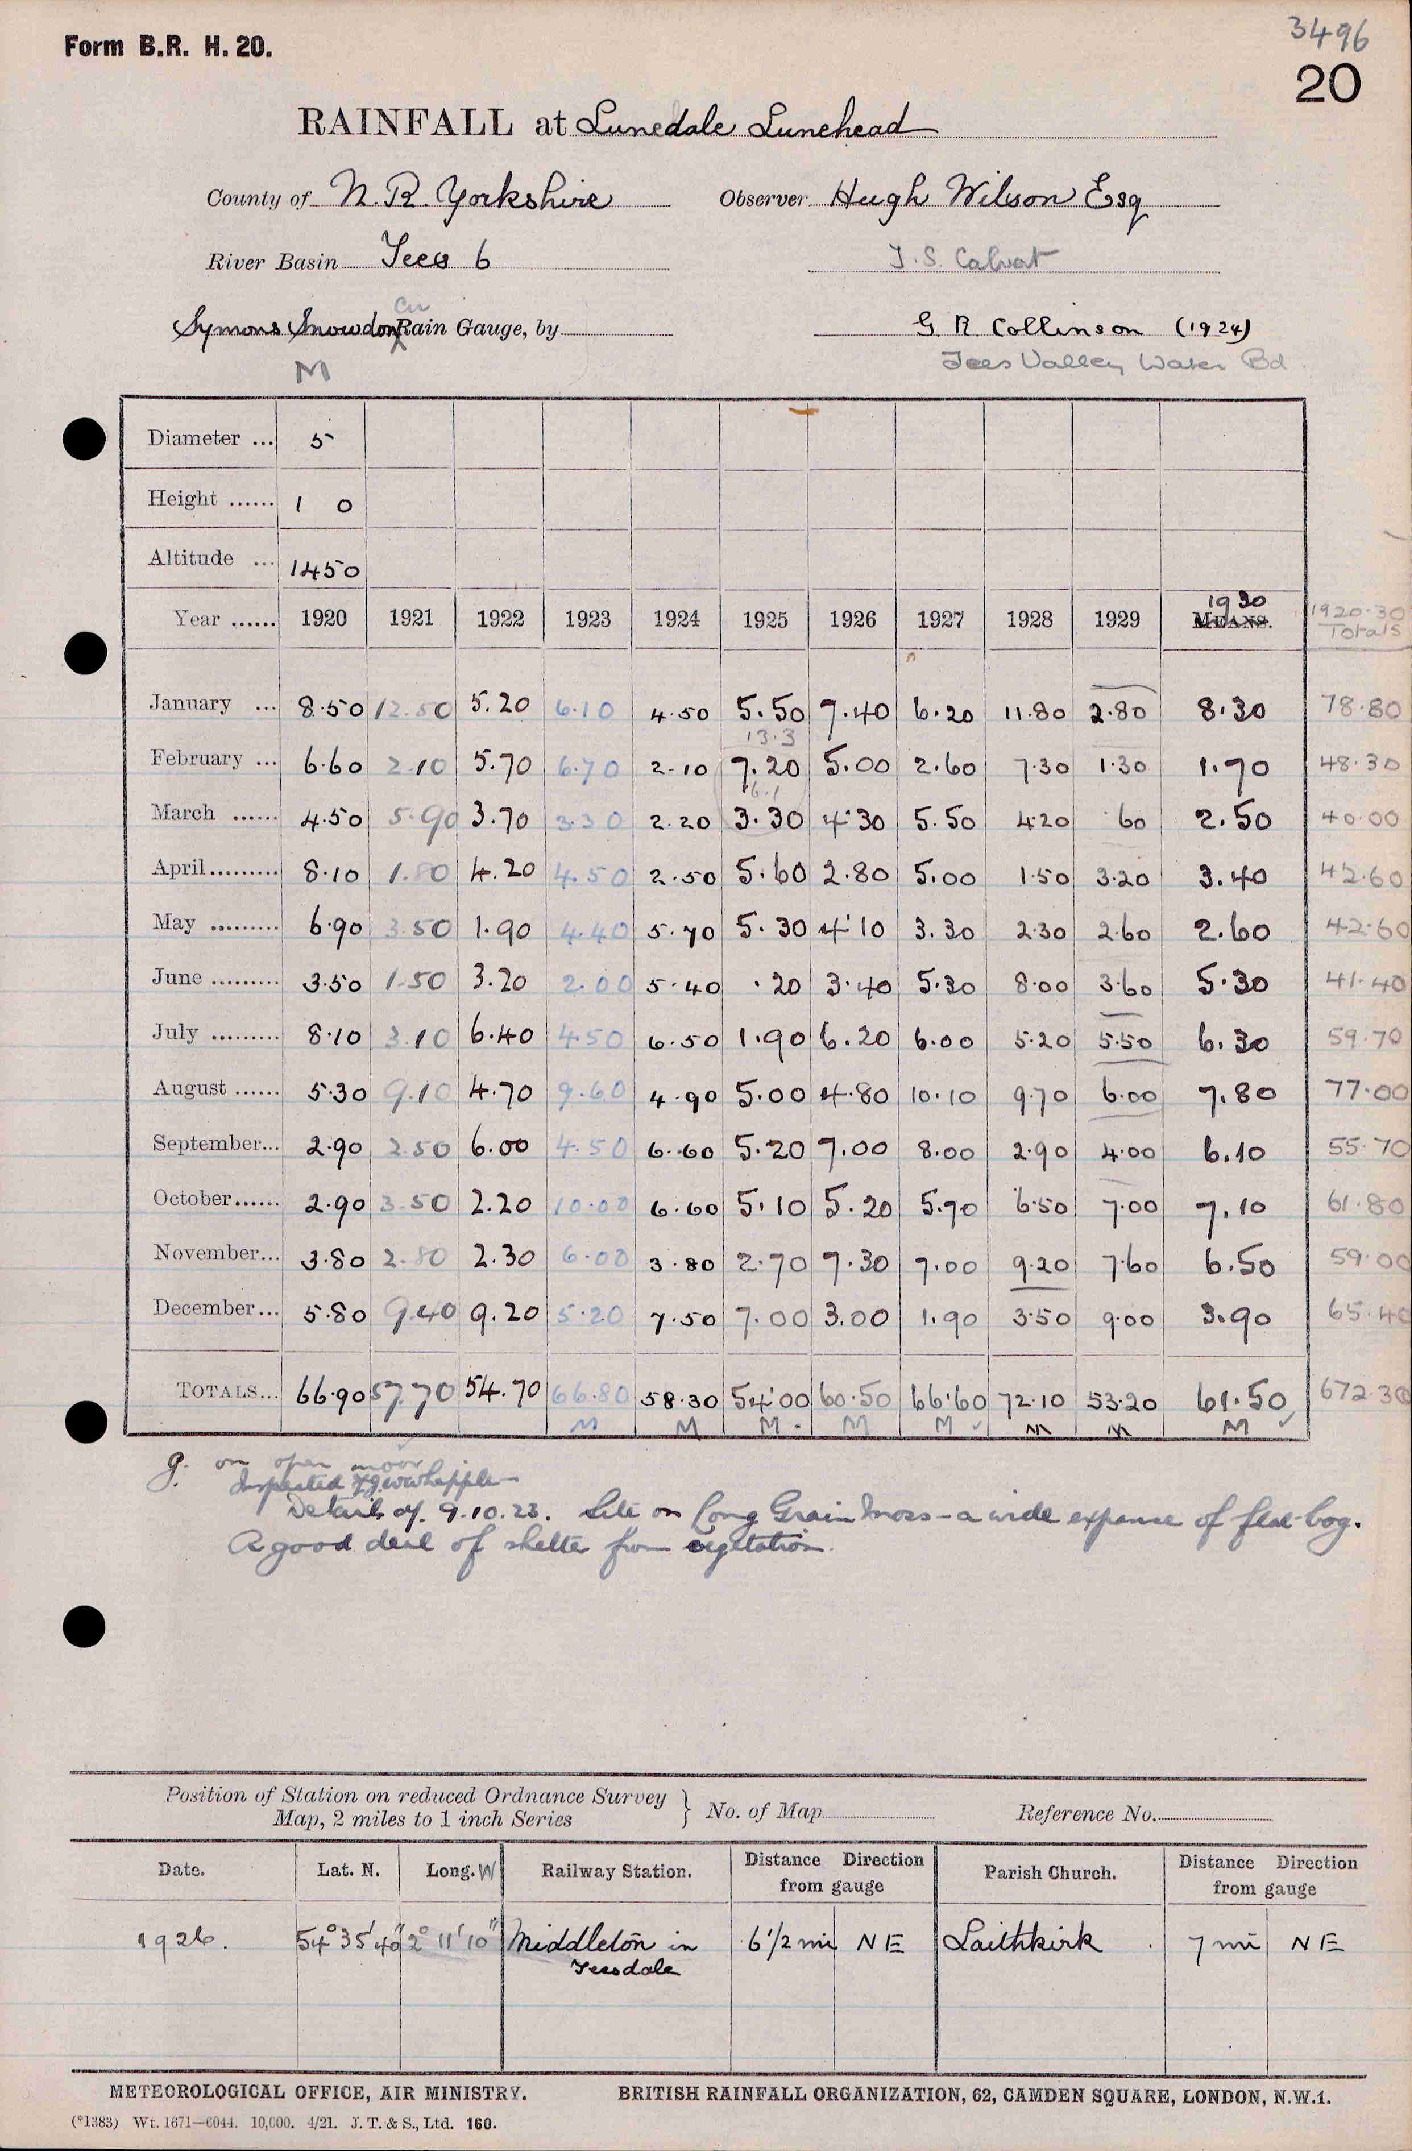 3496
Form B.R. H. 20.
20
RAINFALL at Lunedale Lunehead
County of N. R. Yorkshire Observer Hugh Wilson Esq
River Basin Tees 6 J. S. Calvert
Symons Snowdon Rain Gauge, by G R Collinson (1924)
M Tees Valley Water Bd
Diameter ... 5
Height ...... 1 0
Altitude ... 1450
Year ...... 1920 1921 1922 1923 1924 1925 1926 1927 1928 1929 MEANS. 1930 1920-30 Totals
January ... 8.50 12.50 5.20 6.10 4.50 5.50 7.40 6.20 11.80 2.80 8.30 78.80
13.3
February ... 6.60 2.10 5.70 6.70 2.10 7.20 5.00 2.60 7.30 1.30 1.70 48.30
16.1
March ...... 4.50 5.90 3.70 3.30 2.20 3.30 4.30 5.50 4.20 .60 2.50 40.00
April......... 8.10 1.80 4.20 4.50 2.50 5.60 2.80 5.00 1.50 3.20 3.40 42.60
May ......... 6.90 3.50 1.90 4.40 5.70 5.30 4.10 3.30 2.30 2.60 2.60 42.60
June ......... 3.50 1.50 3.20 2.00 5.40 .20 3.40 5.30 8.00 3.60 5.30 41.40
July ......... 8.10 3.10 6.40 4.50 6.50 1.90 6.20 6.00 5.20 5.50 6.30 59.70
August ...... 5.30 9.10 4.70 9.60 4.90 5.00 4.80 10.10 9.70 6.00 7.80 77.00
September... 2.90 2.50 6.00 4.50 6.60 5.20 7.00 8.00 2.90 4.00 6.10 55.70
October...... 2.90 3.50 2.20 10.00 6.60 5.10 5.20 5.70 6.50 7.00 7.10 61.80
November... 3.80 2.80 2.30 6.00 3.80 2.70 7.30 7.00 9.20 7.60 6.50 59.00
December... 5.80 9.40 9.20 5.20 7.50 7.00 3.00 1.90 3.50 9.00 3.90 65.40
TOTALS... 66.90 57.70 54.70 66.80 58.30 54.00 60.50 66.60 72.10 53.20 61.50 672.30
M M M M M M M M
g. on open moor
Inspected F.J.W. Whipple
Details of. 9.10.23. Site on Long Grain Moss - a wide expanse of flat bog.
A good deal of shelter from vegetation.
Position of Station on reduced Ordnance Survey
Map, 2 miles to 1 inch Series } No. of Map Reference No.
Date. Lat. N. Long. W Railway Station. Distance Direction from gauge Parish Church. Distance Direction from gauge
1926. 54° 35' 40" 2° 11' 10" Middleton in Teesdale 6 1/2 mi NE Laithkirk 7 mi NE
METEOROLOGICAL OFFICE, AIR MINISTRY. BRITISH RAINFALL ORGANIZATION, 62, CAMDEN SQUARE, LONDON, N.W.1.
(*1383) Wt. 1671—6044. 10,000. 4/21. J. T. & S., Ltd. 160.